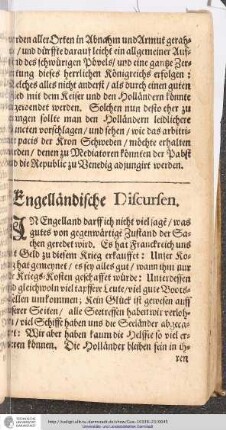 urden aller Orten in Abnahm und Armut geraht-
/ und dürffte darauß leicht ein allgemeiner Auf-
nd des schwürigen Pövels / und eine gantze Zer-
tung dieses herrlichen Königreichs erfolgen:
Welches alles nicht anderst / als durch einen guten
ied mit dem Keiser und den Holländern könnte
gewendet werden. Solchen nun desto eher zu
ngen sollte man den Holländern leidlichere
ncten vorschlagen / und sehen / wie das arbitri-
pacis der Kron Schweden / möchte erhalten
urden / denen zu Mediatoren könnten der Pabst
d die Republic zu Venedig adjungirt werden.
Engelländische Discursen.
IN Engelland darff ich nicht viel sagē / was
gutes von gegenwärtige Zustand der Sa-
chen geredet wird. Es hat Franckreich uns
t Geld zu diesem Krieg erkaufft: Unser Kö-
hat gemeynet / es sey alles gut / wann ihm nur
Kriegs-Kosten geschafft würde: Unterdessen
d gleichwoln viel tapffere Leute / viel gute Boots-
ellen umkommen; Kein Glück ist gewesen auff
serer Seiten / alle Seetreffen haben wir verloh-
/ viel Schiffe haben uns die Seeländer abgeca-
t: Wir aber haben kaum die Helffte so viel er-
ren können. Die Holländer bleiben fein in ih-
ren